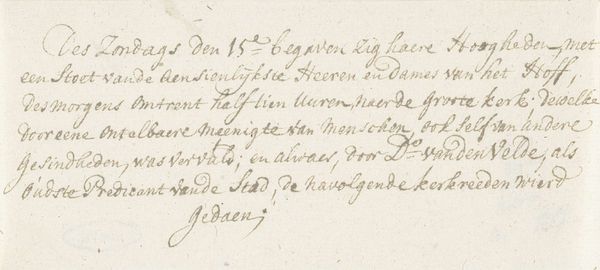 Des Zondags den 15e begaven zig haere Hoogheden, met
een Stoet vande Aensienlijkste Heeren en Dames van het Hoff,
des morgens omtrent half tien Uuren, naer de Groote Kerk; dewelke
door eene ontelbaere meenigte van Menschen, ook self van andere
Gesindheden, was vervuld; en alwaer, door Do. vanden Velde, als
Oudste Predicant vande Stad, de navolgende kerkreeden wierd
gedaen;